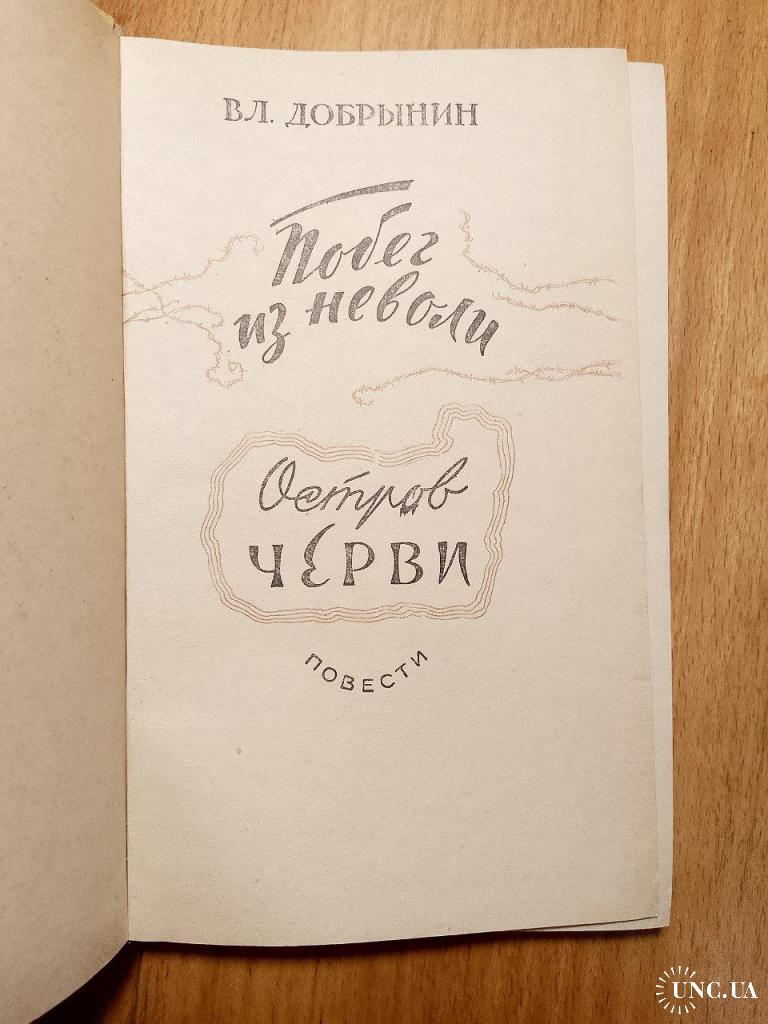 ВЛ. ДОБРЫНИН
Побег
из неволи
Остров
ЧЕРВИ
ПОВЕСТИ
UNC.UA